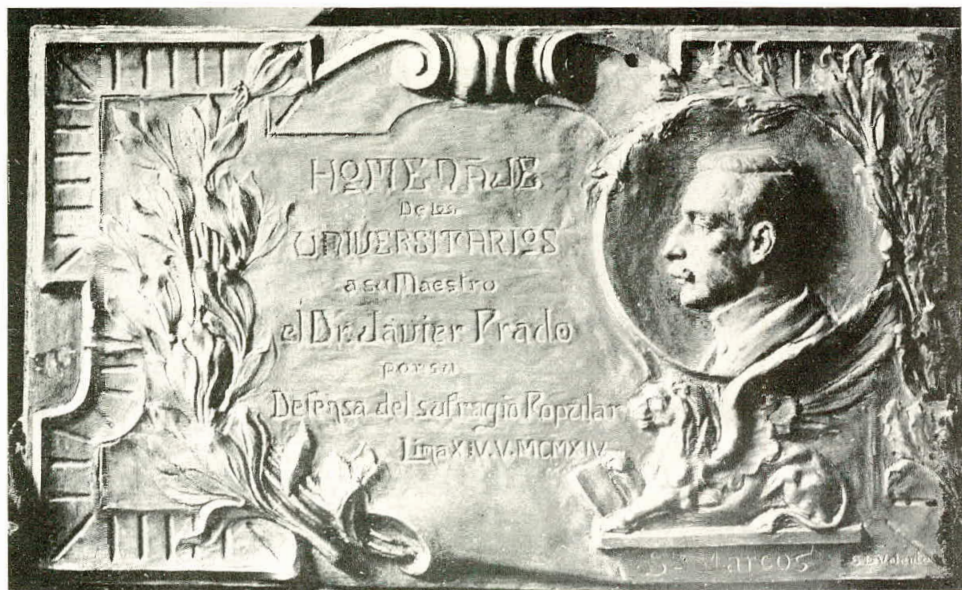 HOMENAJE
De los
UNIVERSITARIOS
a su Maestro
el Dr. Javier Prado
por su
Defensa del sufragio Popular
Lima XIV.V.MCMXIV
Sn Marcos